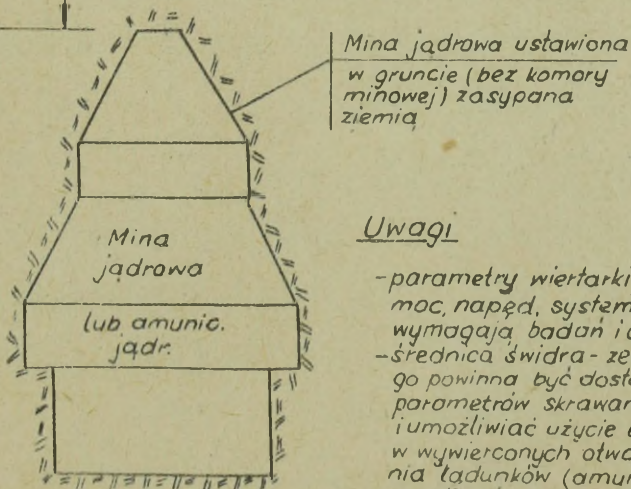 Mina jądrowa ustawiona
w gruncie (bez komory
minowej) zasypana
ziemią
Mina
jądrowa
lub amunic.
jądr.
Uwagi
-parametry wiertarki
moc, napęd, system
wymagają badań i
-średnica świdra - ze
go powinna być dosta
parametrów skrawan
i umożliwiać użycie
w wywierconych otwo
nia ładunków (amun